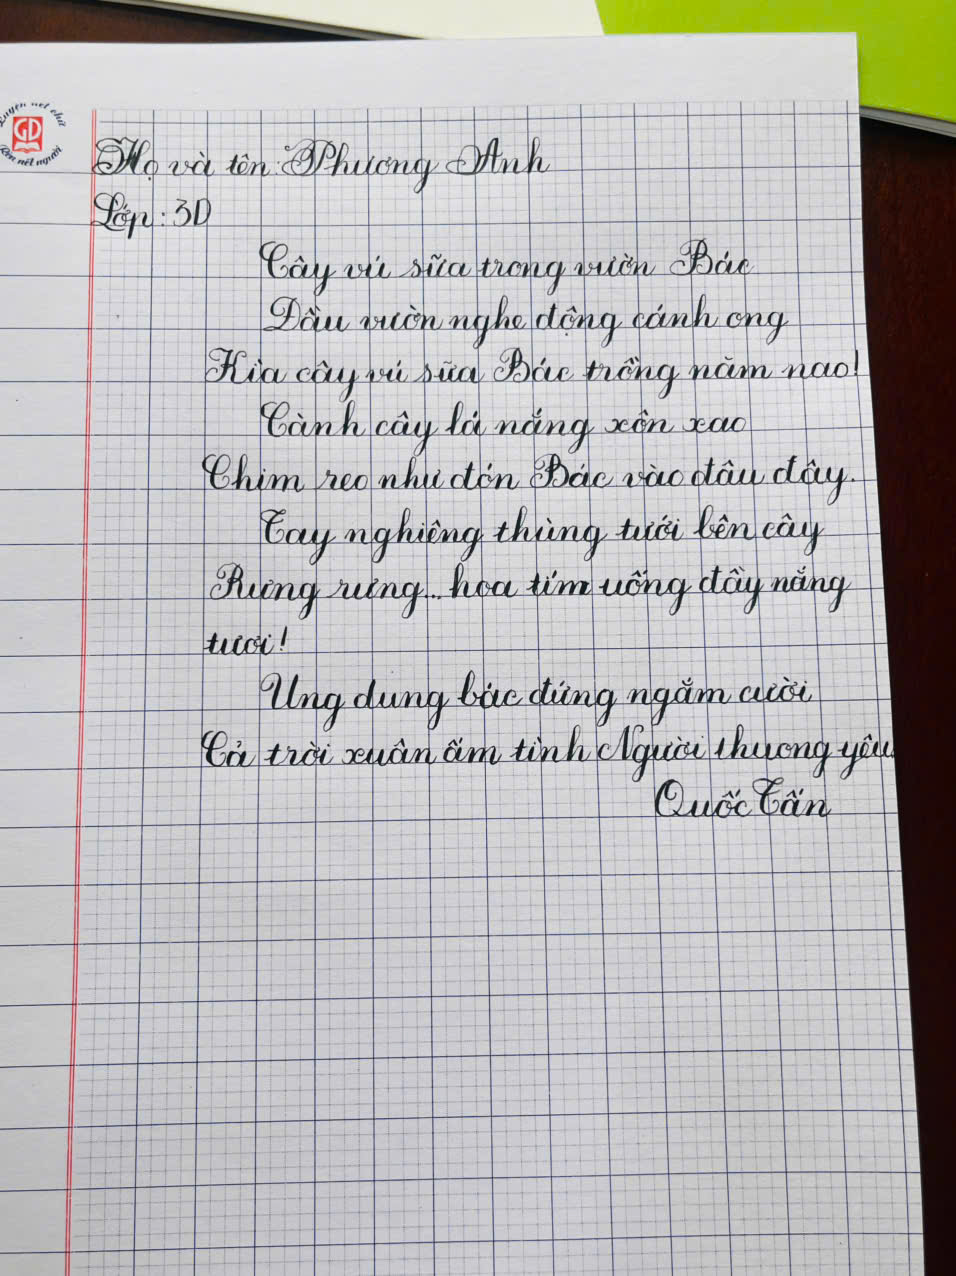 Luyện nét chữ
GD
Rèn nết người
Họ và tên: Phương Anh
Lớp: 3D
Cây vú sữa trong vườn Bác
Đầu vườn nghe động cánh ong
Kìa cây vú sữa Bác trồng năm nao!
Cành cây lá nắng xôn xao
Chim reo như đón Bác vào đâu đây.
Tay nghiêng thùng tưới bên cây
Rưng rưng... hoa tím uống đầy nắng
tươi!
Ung dung bác đứng ngắm cười
Cả trời xuân ấm tình Người thương yêu
Quốc Tấn